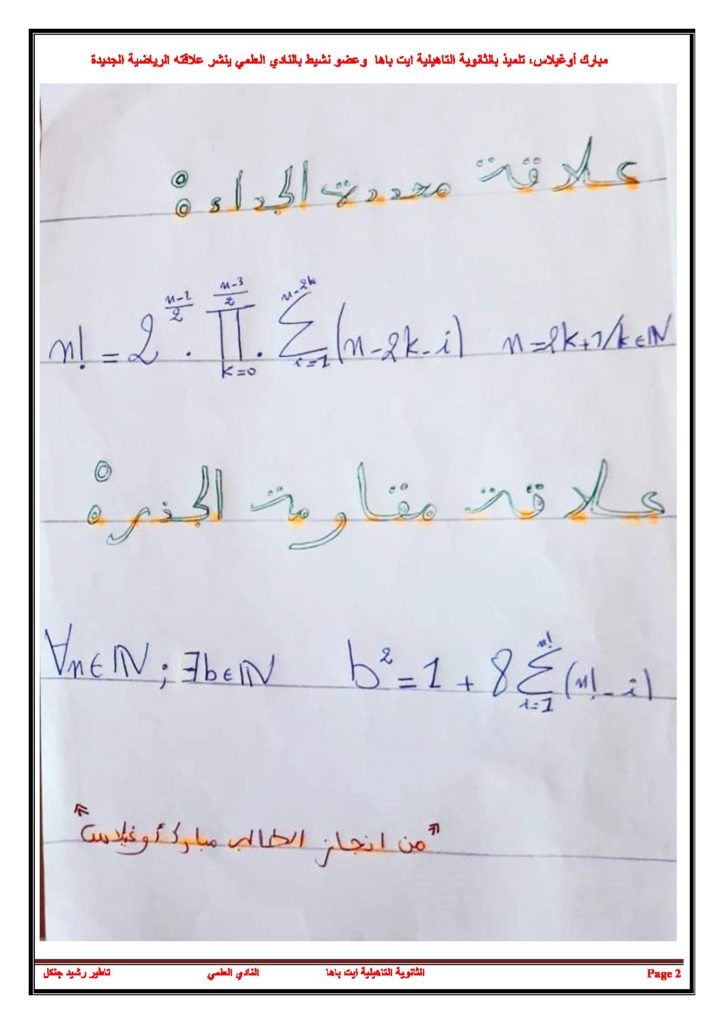 مبارك أوغيلاس، تلميذ بالثانوية التاهيلية ايت باها وعضو نشيط بالنادي العلمي ينشر علاقته الرياضية الجديدة
علاقة محددة الجداء:
n! = 2^{\frac{n-1}{2}} . \prod_{k=0}^{\frac{n-3}{2}} . \sum_{i=1}^{n-2k} (n-2k-i) n=2k+1/k∈ℕ
علاقة مقاومة الجذرة:
∀n∈ℕ; ∃b∈ℕ b² = 1 + 8 \sum_{i=1}^{n!} (n!-i)
"من انجاز الطالب مبارك أوغيلاس"
تاطير رشيد جنكل النادي العلمي الثانوية التاهيلية ايت باها Page 2